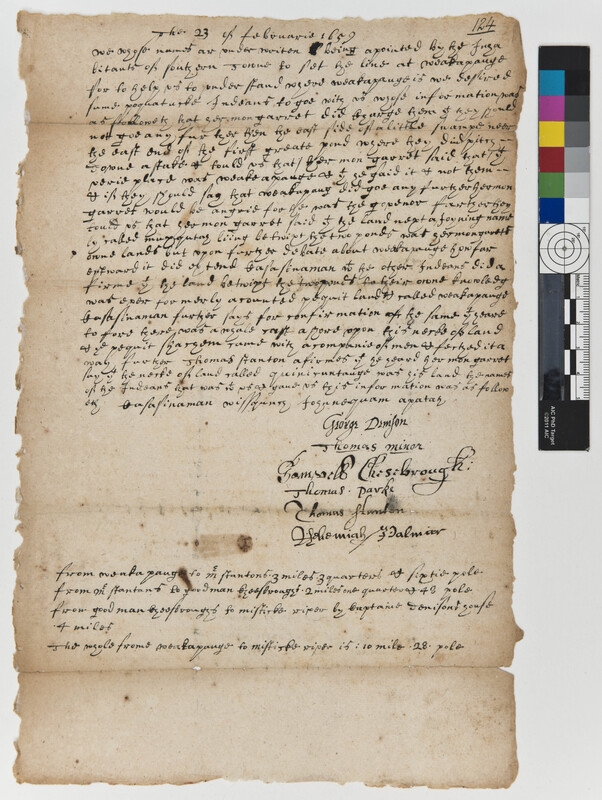 124
The 23 of februarie 1659
we whose names ar under writen being apointed by the Inha
bitants of southern towne to set the line at weakapauge
for to help us to under stand where weakapauge is we desired
some poquatucke Indeans to goe with us whose information was
as followeth that hermongarret did charge them they should
not goe any further then the east side of a little swampe neer
the east end of the first great pond where they did pitch
downe a stake & tould us that hermongarret said that
verie place was weakapauge & he said it & not them
& if they should say that weakapaug did goe any further hermon
garret would be angrie for he was the governer further they
tould us that hermongarret said the land next a joyning name
ly called being betwixt the two ponds was hermongarrets
owne land but upon further debate about weakapauge how far
estward it did extend Casasinaman & the other Indeans did a
firme the land betwixt the two ponds to their owne knowledg
was ever formerly acounted pequit land & called weakapauge
Casasinaman further says for confirmation of the same heare
to fore there was a whale cast a shore upon this necke of land
& the pequit sachem came with a companie of men & fetched it a
way further Thomas stanton afirmes he heard hermongarret
say the necke of land called quinicuntauge was his land the names
of the Indeans that was with us & gave us this information was as follow
eth Casasinaman
George Denison
Thomas Minor
Samuell Chesebrough:
Thomas Parke
Thomas Stanton
Nehemiah Palmer
from weakapauge to mr stantons 3 miles 3 quarters & sixtie pole
from mr stantans to goodman cheesbroughs 2 miles one quarter & 48 pole
from goodman cheesbroughs to misticke river by captaine denisons house
4 miles
The whole frome weakapauge to misticke river is: 10 mile 28 pole
AIC PhD Target
©2011 AIC